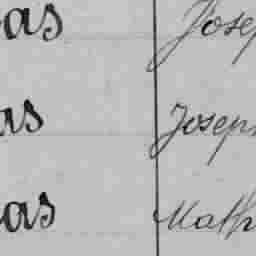 as Josep
as Joseph
as Math